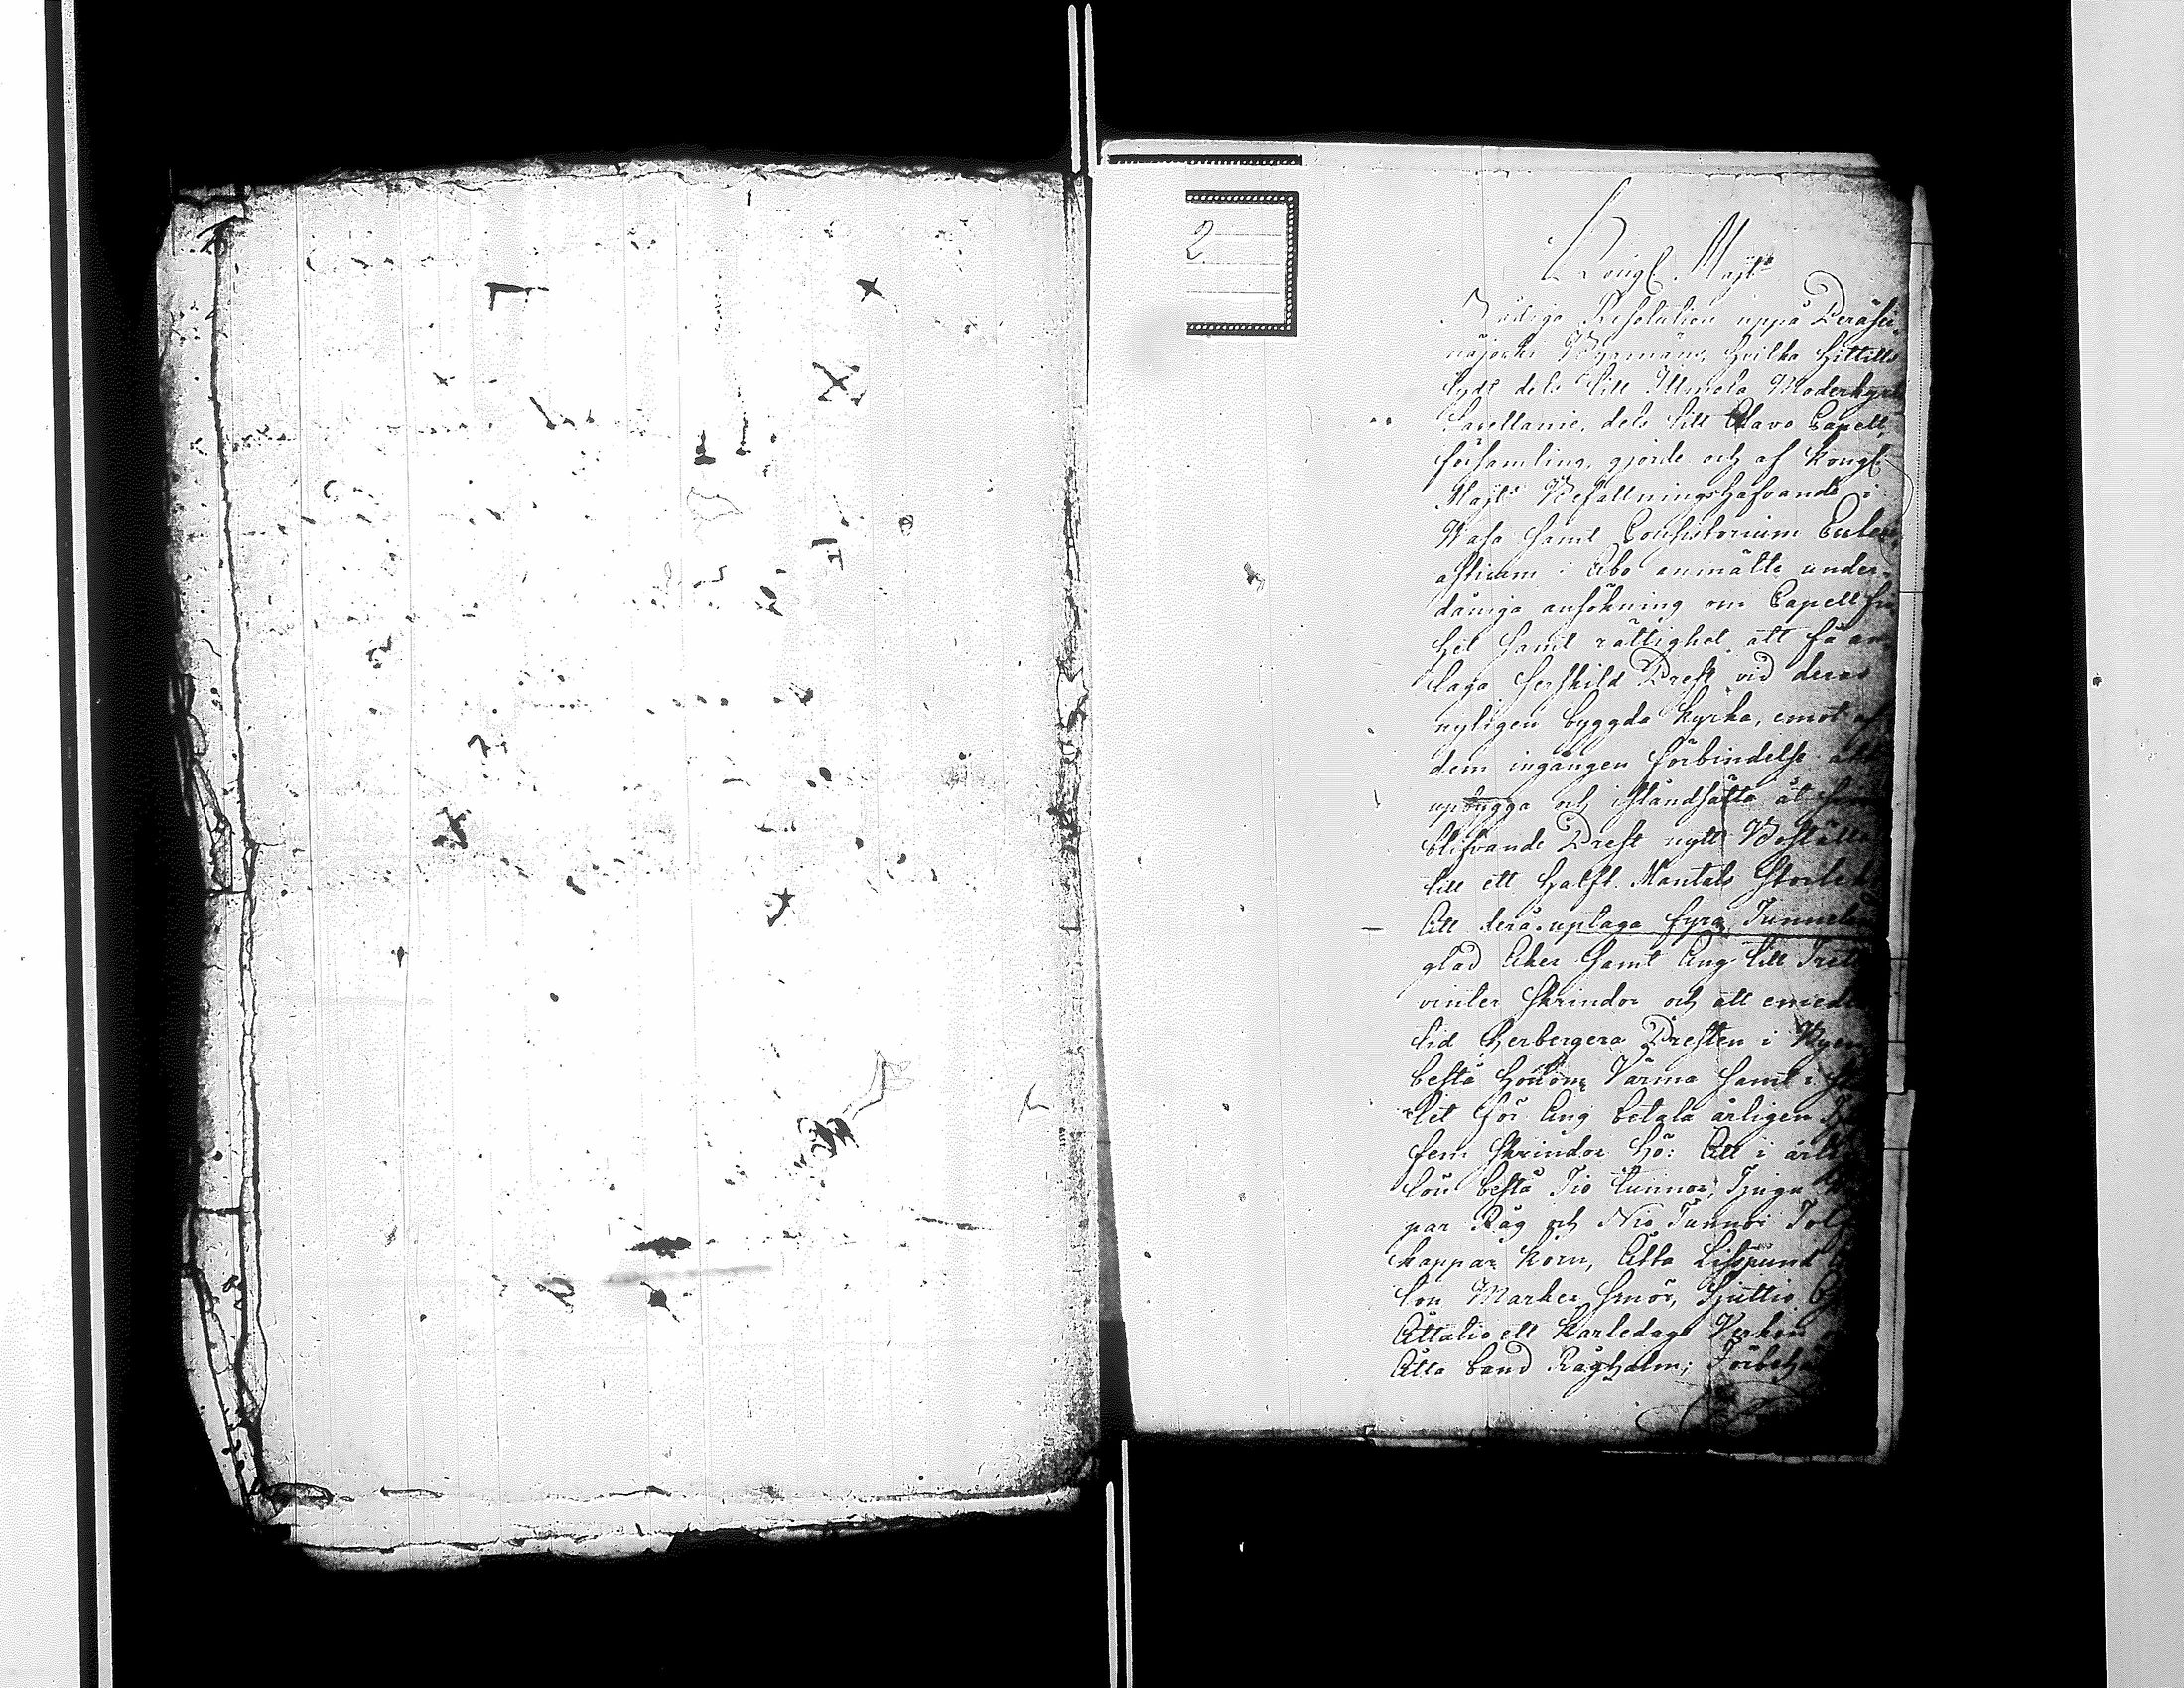 2
Kongl. Majts
Nådiga Resolution uppå Peräsei
näjoki Byamäns, hvilka hittills
lydt dels till Ilmola Moderkyrk
Capellanie, dels till Alavo Capell
församling, gjorde och af Kongl.
Majts Befallningshafvande i
Wasa samt Consistorium Eccles
asticum i Åbo anmälte under-
dåniga ansökning om Capell fri
het samt rättighet att få an
taga serskild Prest vid deras
nyligen byggda kyrka, emot af
dem ingången förbindelse att
upbygga och iståndsätta åt
blifvande Prest nytt Boställe
till ett halft Mantals Storlek
Att derå uptaga fyra Tunneland
glad Åker samt Äng till
vinter skrindor och att emedler
tid herbergera Presten i Byen
bestå honom Värma samt i
let för Äng betala årligen
fem skrindor hö: Att i årlig
lön bestå Tio tunnor, Tjugu
par Råg och Nio Tunnor Tolf
kappar korn, Åtta Lispund
ton Marker smör, Sjuttio
Åttatio ett karledags Verken
Åtta band Råghalm;